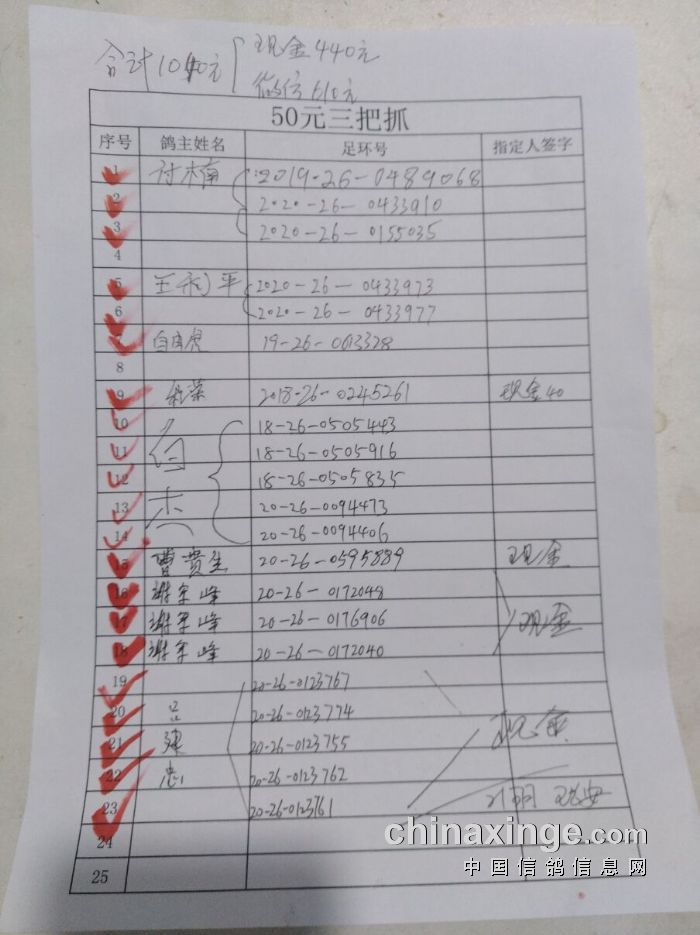 合计1040元
现金440元
微信610元
50元三把抓
序号 鸽主姓名 足环号 指定人签字
1 付楠 2019-26-0489068
2 2020-26-0433910
3 2020-26-0155035
4
5 王 平 2020-26-0433973
6 2020-26-0433977
7 19-26-0013328
8
9 2018-26-0245261 现金40
10 18-26-0505443
11 18-26-0505916
12 18-26-0505835
13 20-26-0094473
14 20-26-0094406
15 曹贵生 20-26-0595889 现金
16 谢军峰 20-26-0172048
17 谢军峰 20-26-0176906 现金
18 谢军峰 20-26-0172040
19 20-26-0123767
20 吕 20-26-0123774 现金
21 建 20-26-0123755
22 忠 20-26-0123762
23 20-26-0123761
24
25
chinaxinge.com
中国信鸽信息网